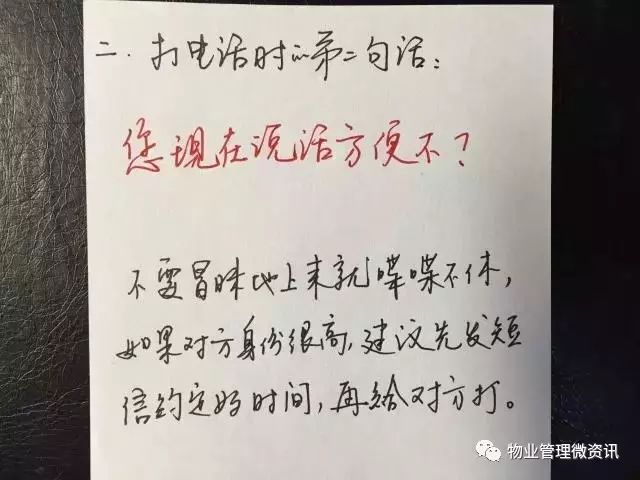 二.打电话时的第二句话：
您现在说话方便不？
不要冒昧地上来就喋喋不休，
如果对方身份很高，建议先发短
信约定好时间，再给对方打。
物业管理微资讯